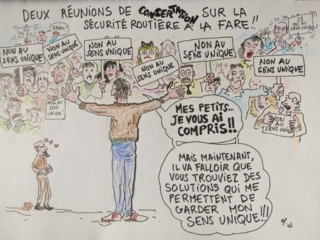 DEUX RÉUNIONS DE CONSERTATION SUR LA
SÉCURITÉ ROUTIÈRE À LA FARE!!
NON AU
SENS UNIQUE
NON AU
SENS UNIQUE
NON AU
SENS UNIQUE
NON AU
SENS UNIQUE
NON AU
SENS UNIQUE
NON AU
SENS UNIQUE
NON AU
SENS UNIQUE
NON AU
SENS UNIQUE
MES PETITS...
JE VOUS AI
COMPRIS!!
MAIS MAINTENANT,
IL VA FALLOIR QUE
VOUS TROUVIEZ DES
SOLUTIONS QUI ME
PERMETTENT DE
GARDER MON
SENS UNIQUE!!!